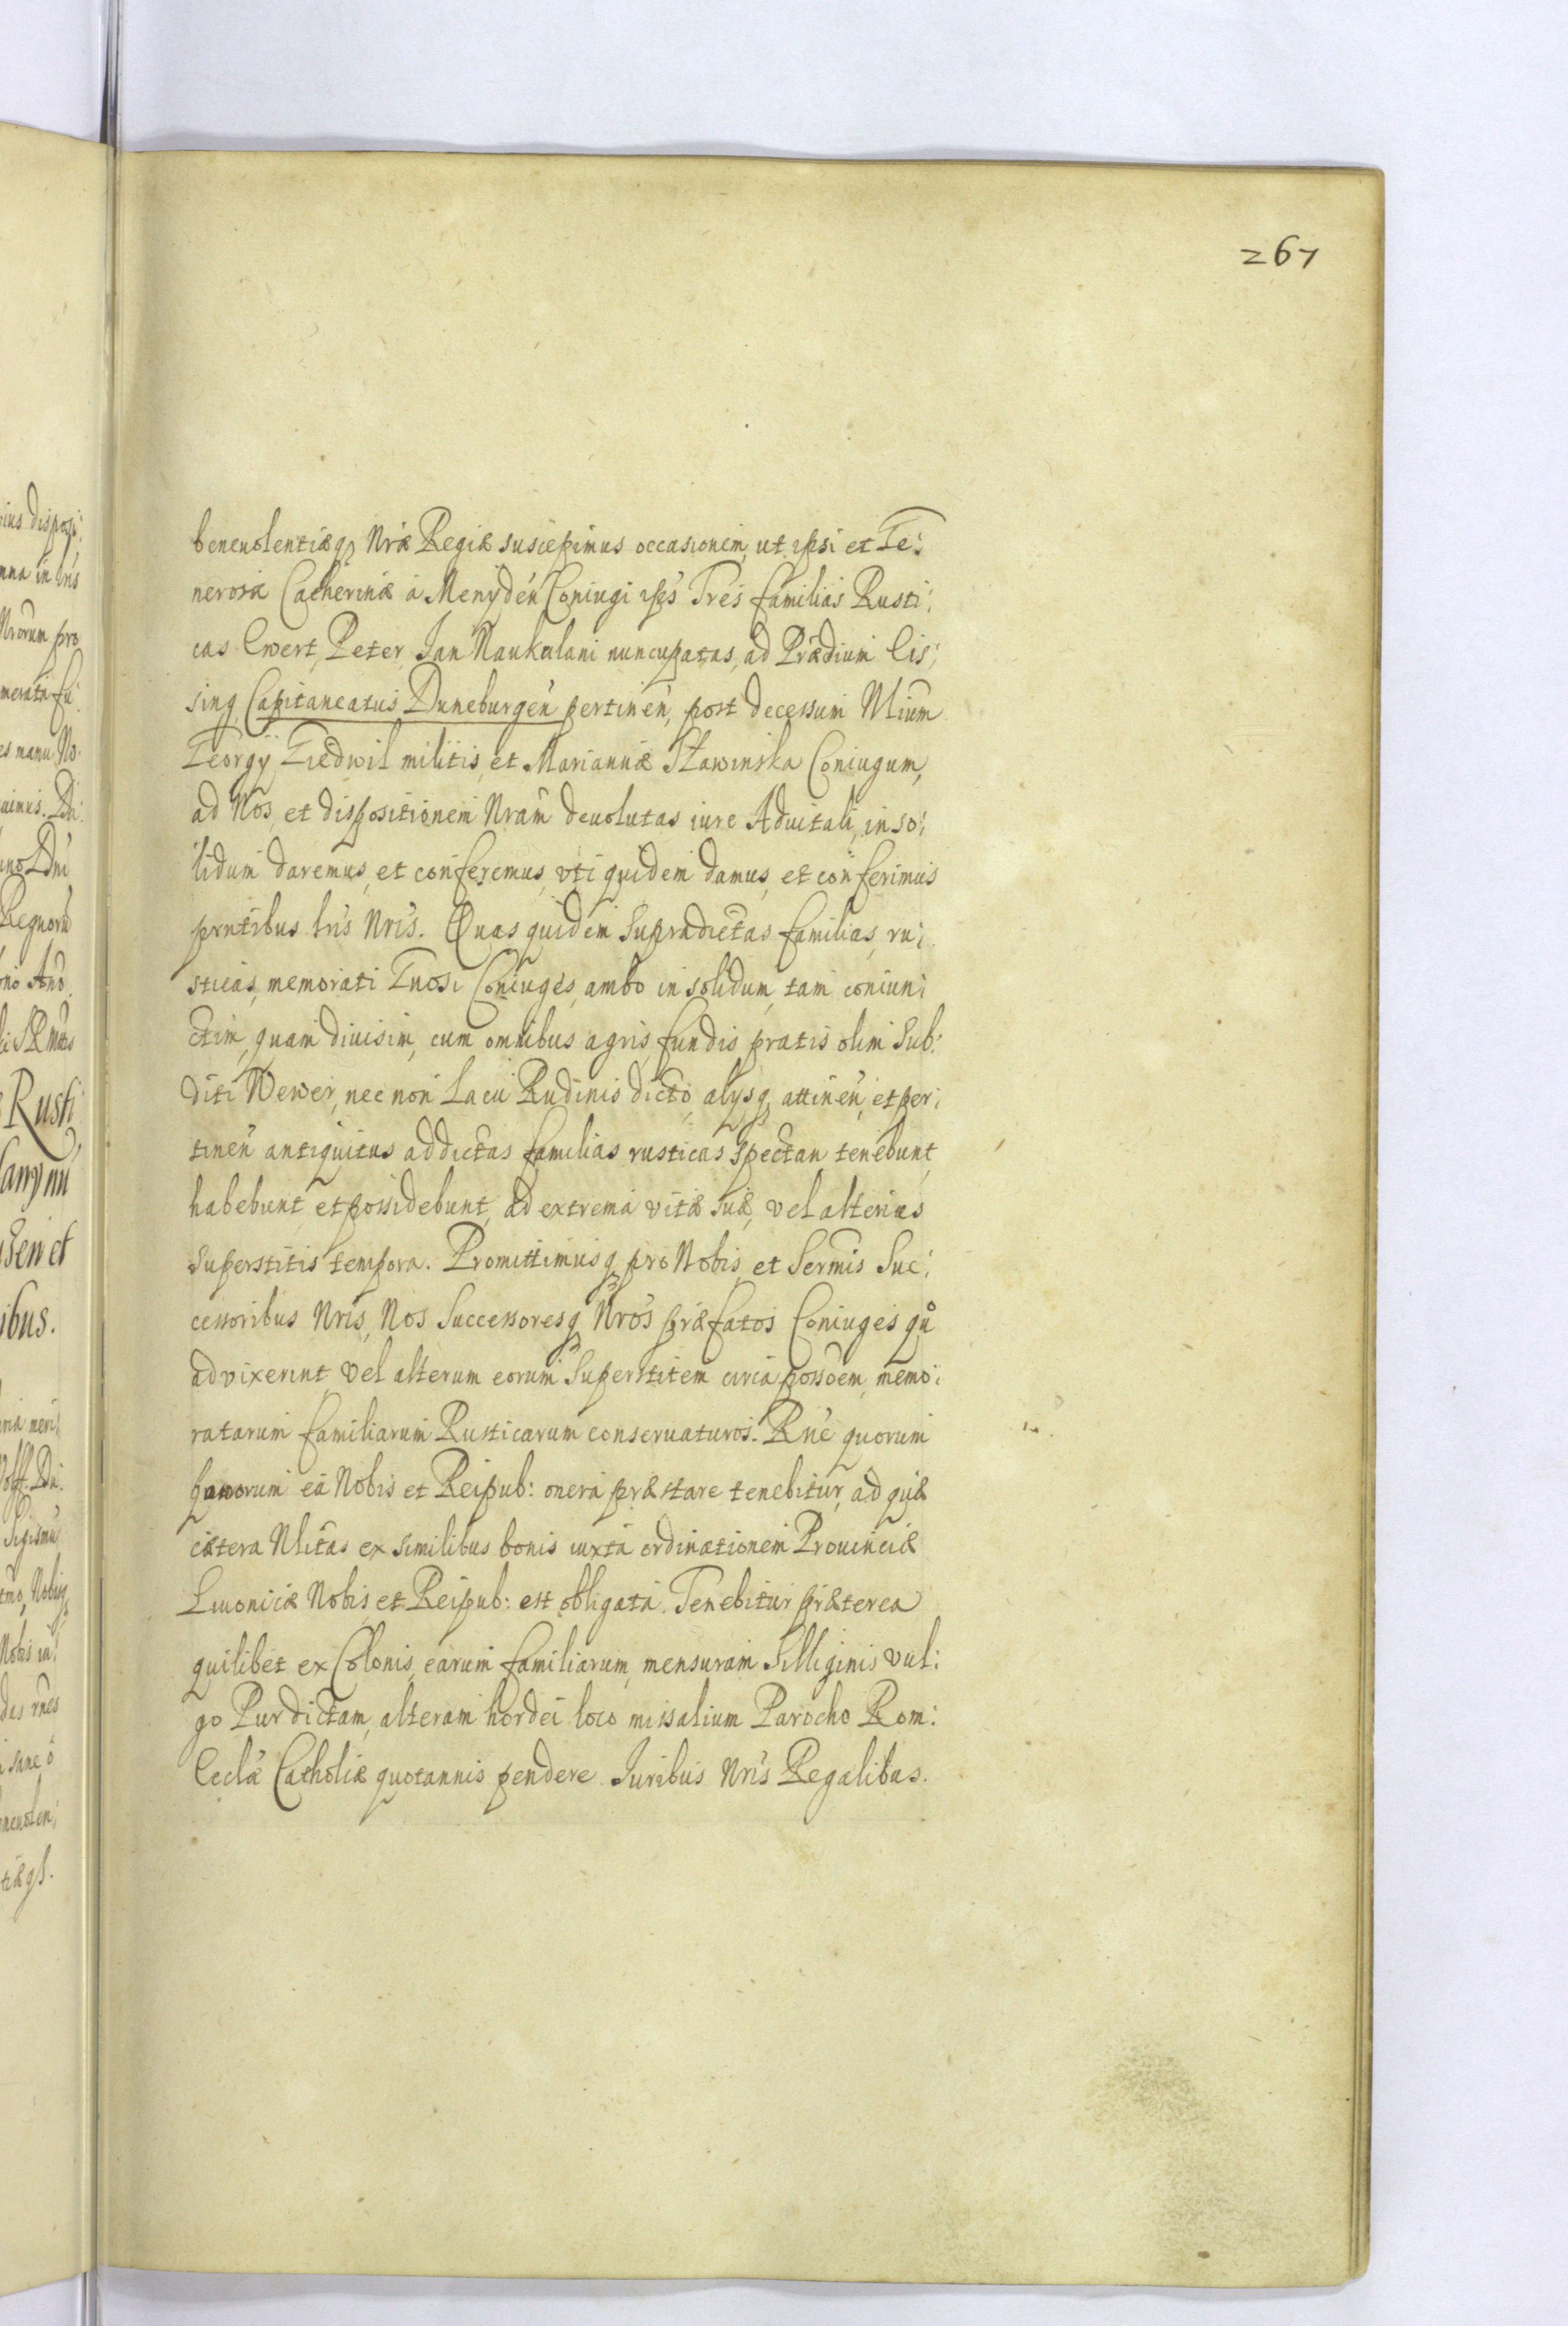 267
benevolentiæq₃ Nræ Regiæ suscepimus occasionem, ut ipsi et Ge:
nerosæ Catherinæ a Menyden Coniugi ipś Tres familias Rusti:
cas Ewert, Peter, Jan Naukulani nuncupatas, ad Prædium Lis:
sing Capitaneatus Duneburgeń pertineń, post decessum Mium
Georgÿ Giedwil militis, et Mariannæ Sławinska Coniugum,
ad Nos, et dispositionem Nram devolutas iure Advitali, in so:
lidum daremus, et conferemus, vti quidem damus, et conferimus
prntibus lris Nris. Quas quidem supradictas familias ru:
sticas, memorati Gnosi Coniuges, ambo in solidum, tam coniun:
ctim, quam divisim, cum omnibus agris, fundis pratis olim Sub:
diti Wewer, nec non Lacu Rudinis dicto, alysq₃ attineń, et per:
tineń antiquitus ad dictas familias rusticas spectan tenebunt,
habebunt, et possidebunt, ad extrema vitæ suæ, vel alterius
superstitis tempora. Promittimusq₃ pro Nobis, et Sermis Suc:
cessoribus Nris, Nos Successoresq₃ Nros præfatos Coniuges qu̇o
advixerint, vel alterum eorum Superstitem circa possoem, memo:
ratarum familiarum Rusticarum conservaturos. Rne quorum
bonorum ea Nobis et Reipub: onera præstare tenebitur, ad quæ
cætera Nlitas ex similibus bonis iuxta ordinationem Provinciæ
Livoniciæ Nobis, et Reipub: est obligata. Tenebitur præterea
quilibet ex Colonis, earum familiarum, mensuram Silliginis vul:
go Pur dictam, alteram hordei loco missalium Parocho Rom:
Ecclæ Catholiæ quotannis pendere. Juribus Nris Regalibus.